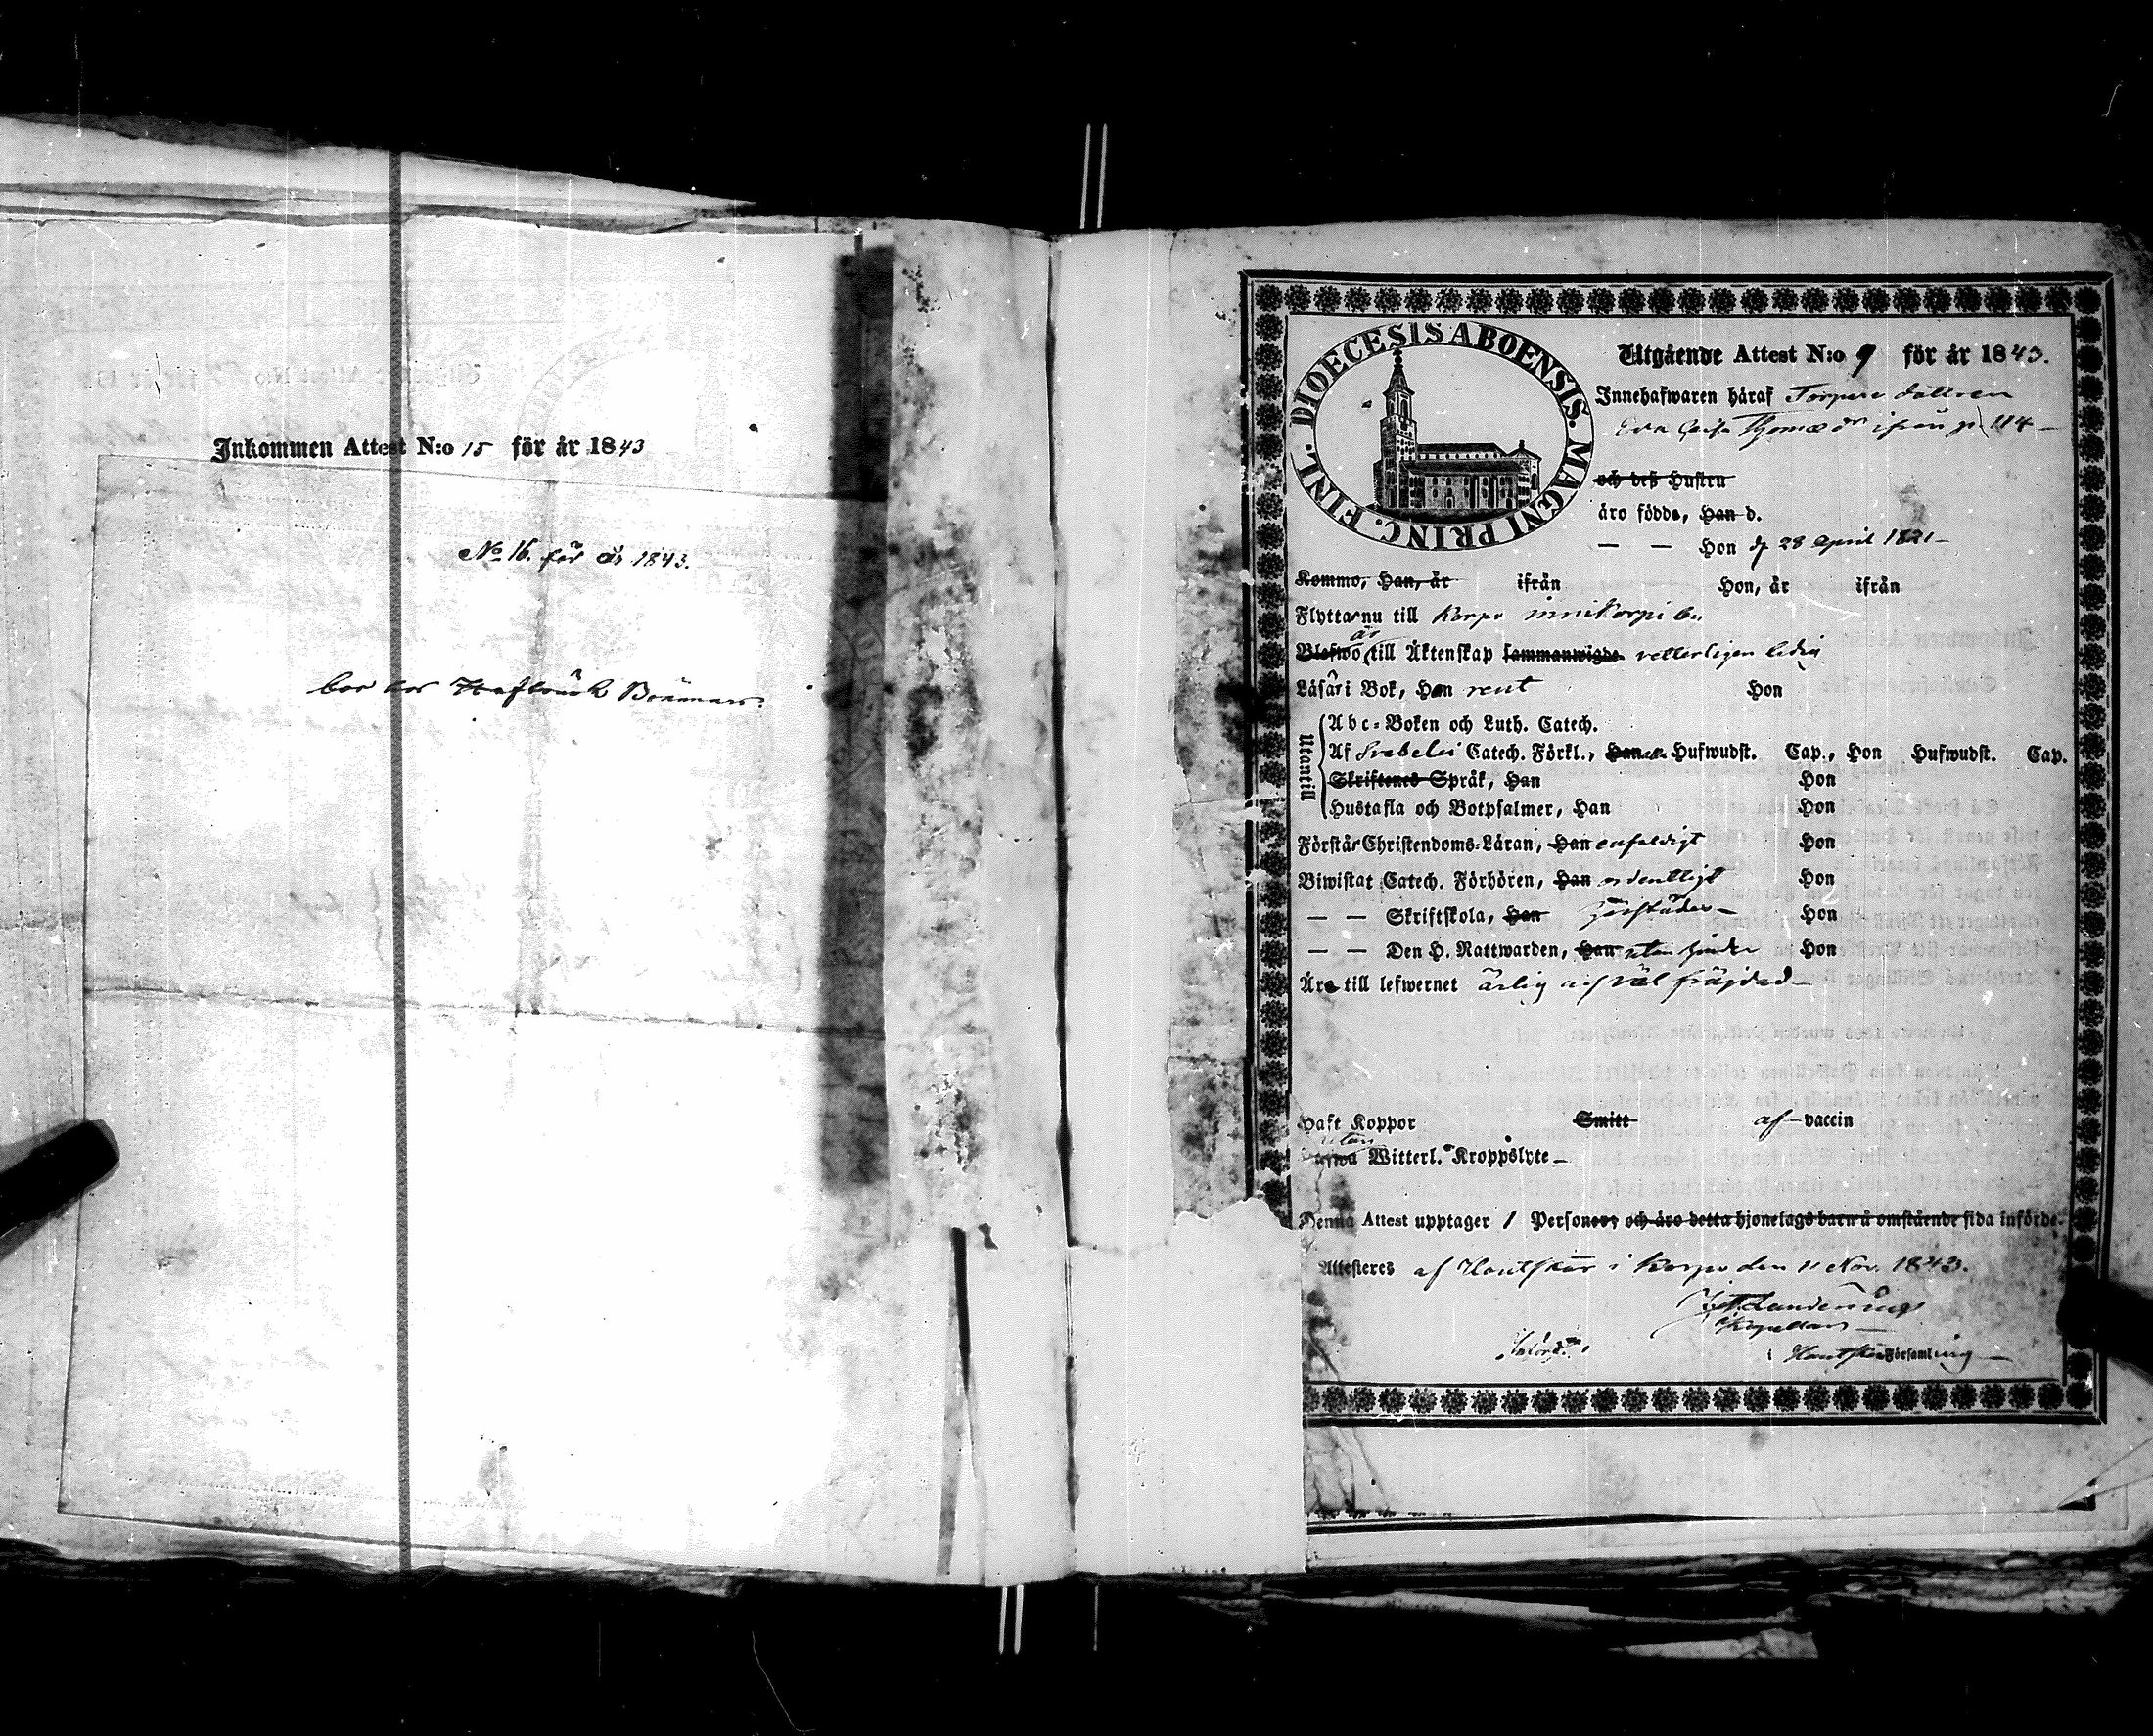 Inkommen Attest N:o 15 för år 1843
No 16. för år 1843.
bor hos
DIOECESIS ABOENSIS. MAGNI PRINC. FINL.
Utgående Attest N:o 9 för år 1843.
Innehafwaren häraf Torpare dottren
Eva Caisa Thomas dr ifrån p 114
och deß Hustru
äro födde, Han d.
— — Hon d 28 April 1821
Komme, Han, år ifrån Hon, år ifrån
Flytta nu till Korpo
Blefwo är till Äktenskap sammanwigde veterligen ledig
Läsa i Bok, Han rent Hon
Utantill
Abc-Boken och Luth. Catech.
Af Svebelii Catech. Förkl., Han alla Hufwudst. Cap., Hon Hufwudst. Cap.
Skriftenes Språk, Han Hon
Hustafla och Botpsalmer, Han Hon
Förstår Christendoms-Läran, Han enfaldigt Hon
Biwistat Catech. Förhören, Han ordentligt Hon
— — Skriftskola, Han Hon
— — Den H. Nattwarden, Han utan hinder Hon
Äro till lefwernet ärlig och väl fräjdad
Haft Koppor Smitt af vaccin
utan
Witterl. Kroppslyte
Denna Attest upptager 1 Personer, och äro detta hjonelags barn å omstående sida införde.
Attesteras af Houtskär i Korpo den 11 Nov. 1843.
Kapellan
i Houtskär Församling